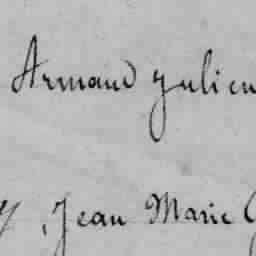 Armand Julien
, Jean Marie